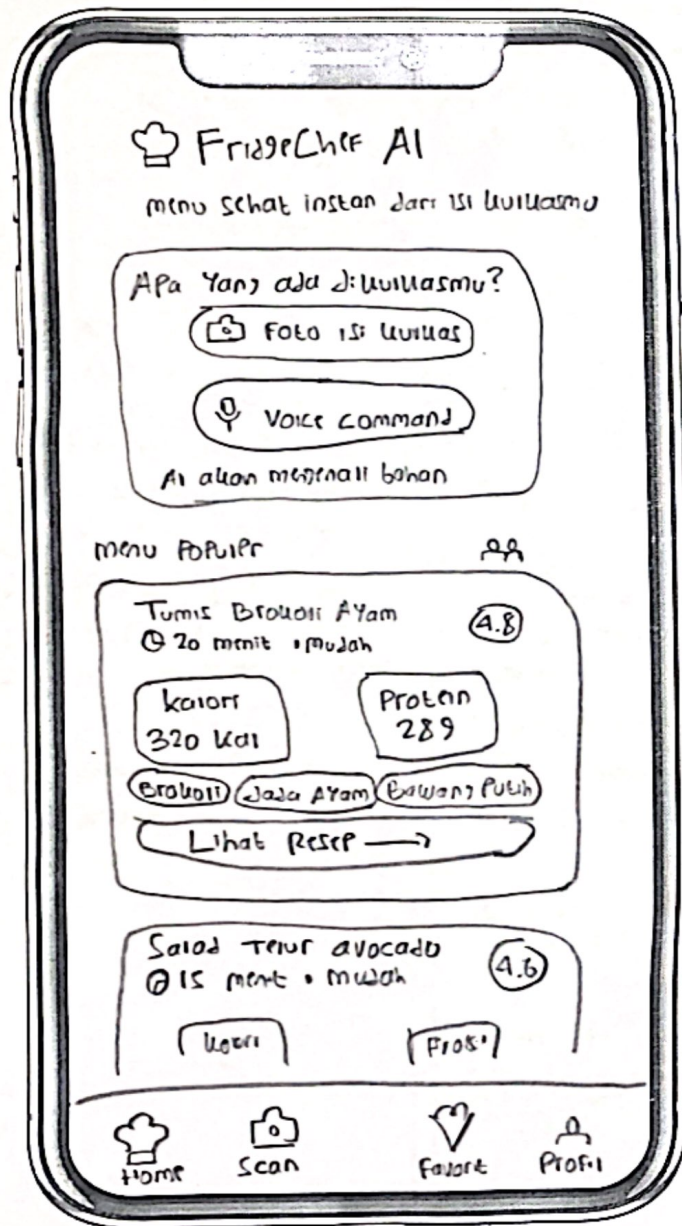 FridgeChef AI
menu sehat instan dari isi kulkasmu
Apa Yang ada dikulkasmu?
Foto isi kulkas
Voice command
AI akan mengenali bahan
menu Populer
Tumis Brokoli Ayam
4.8
20 menit • mudah
kalori
320 kal
Protein
28g
Brokoli
Dada Ayam
Bawang Putih
Lihat Resep →
Salad Telur avocado
4.6
15 menit • mudah
kalori
Home
Scan
Favorit
Profil